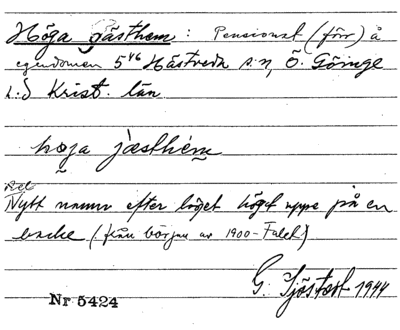 Höga gästhem : Pensionat (förr) å
egendomen 5⁴⁶ Hästveda s:n, Ö. Göinge
Krist. län
høga jæsthèm
Nytt namn efter läget högt uppe på en
backe (från början av 1900-talet)
G. Sjöstedt 1944
Nr 5424